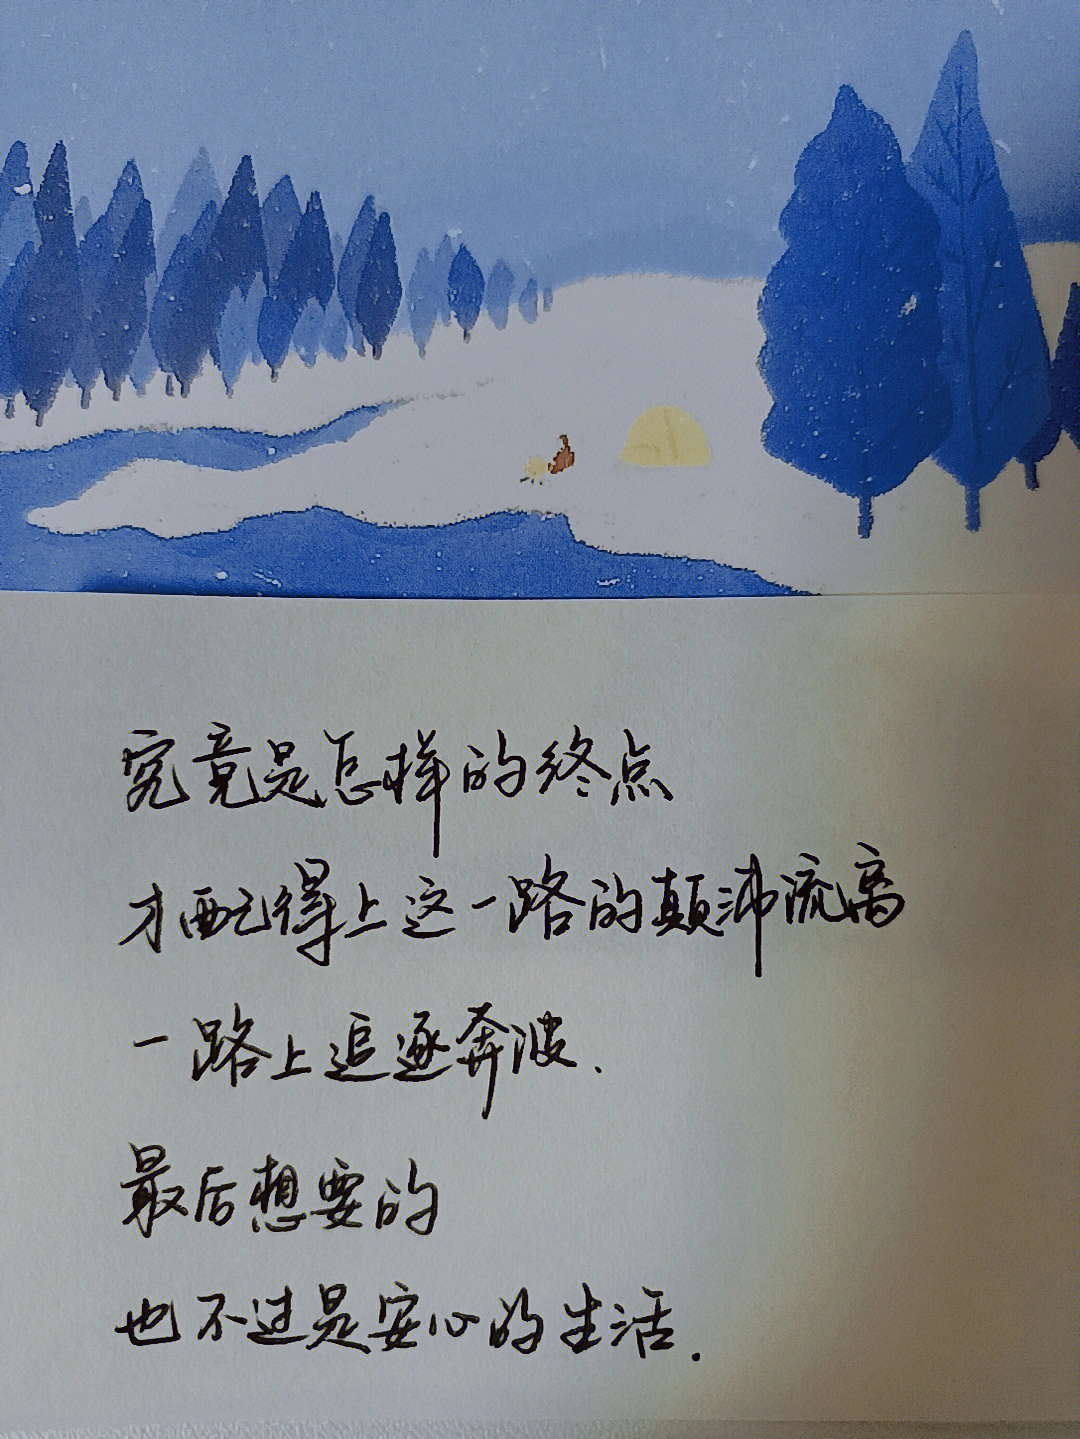 究竟是怎样的终点
才配得上这一路的颠沛流离
一路上追逐奔波.
最后想要的
也不过是安心的生活.